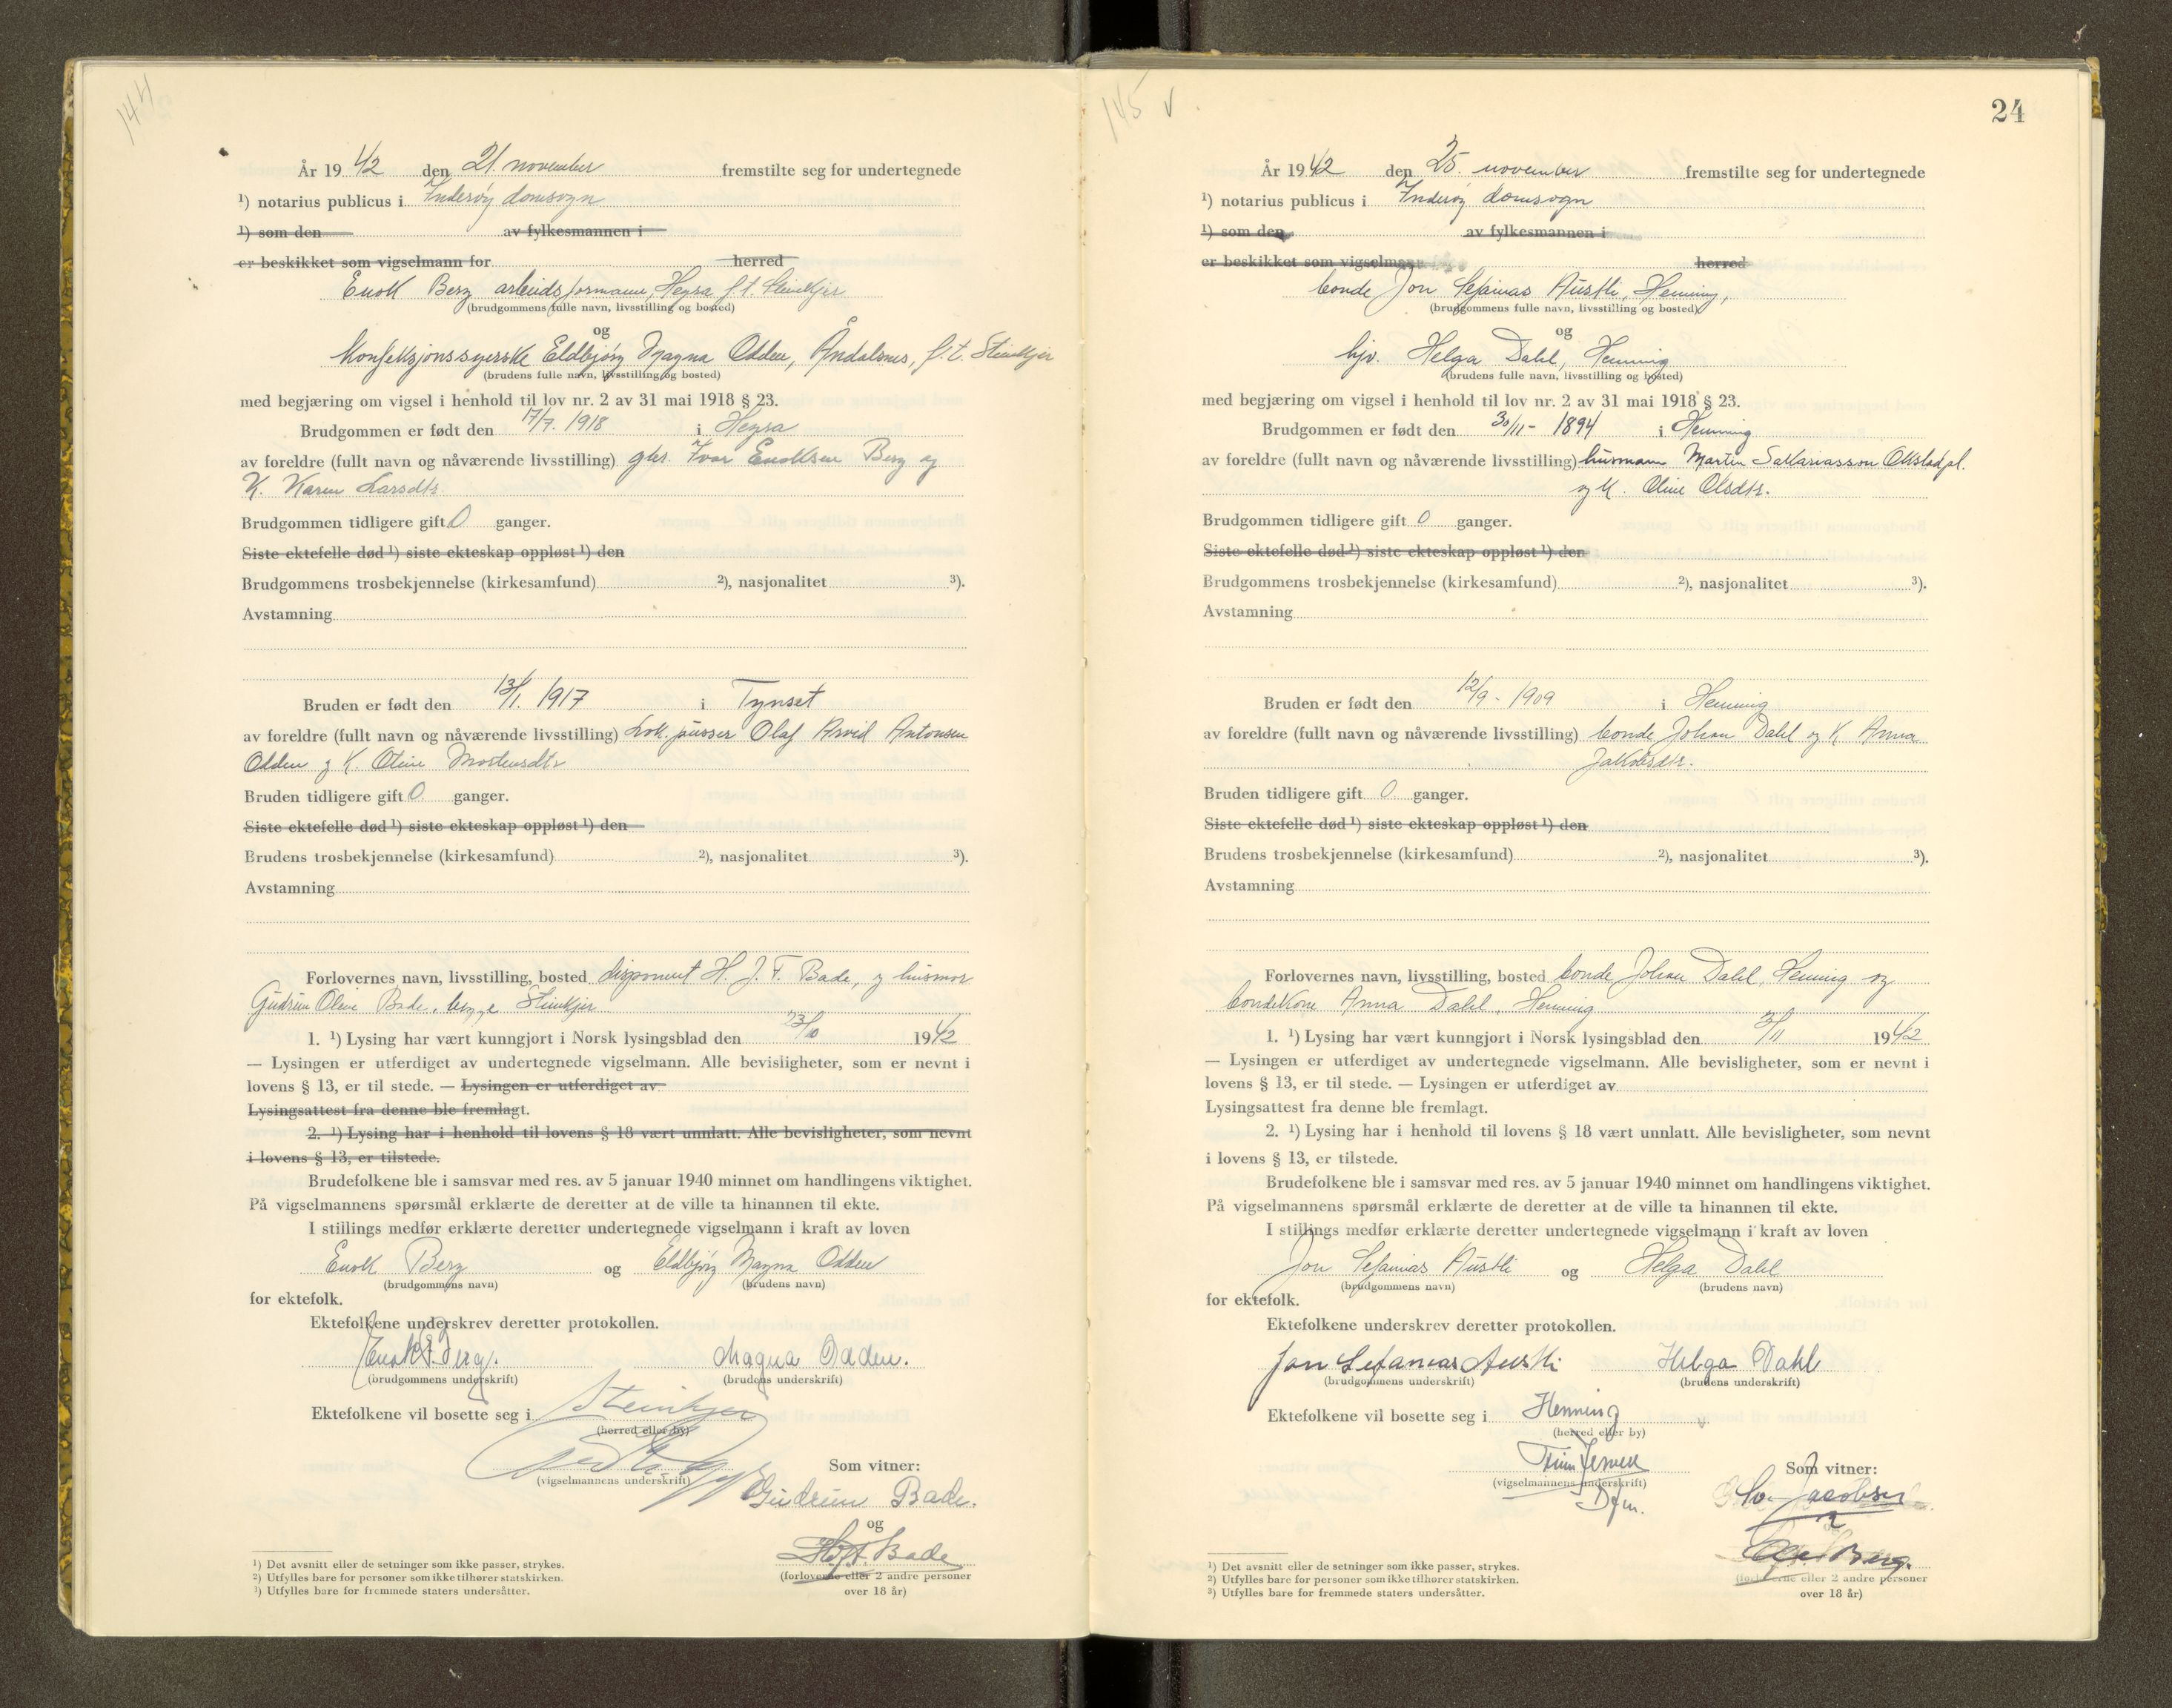 144
År 19 42 den 21. november fremstilte seg for undertegnede
¹) notarius publicus i Inderøy domsogn
¹) som den av fylkesmannen i
er beskikket som vigselmann for herred
Enok Berg arbeidsformann, Hegra f.t. Steinkjer
(brudgommens fulle navn, livsstilling og bosted)
og
Konfeksjonssyerske Eldbjørg Magna Odden, Åndalsnes, f.t. Steinkjer
(brudens fulle navn, livsstilling og bosted)
med begjæring om vigsel i henhold til lov nr. 2 av 31 mai 1918 § 23.
Brudgommen er født den 17/7. 1918 i Hegra
av foreldre (fullt navn og nåværende livsstilling) gbr. Ivar Enoksen Berg og
K. Karen Larsdtr.
Brudgommen tidligere gift 0 ganger.
Siste ektefelle død ¹) siste ekteskap oppløst ¹) den
Brudgommens trosbekjennelse (kirkesamfund) ²), nasjonalitet ³).
Avstamning
Bruden er født den 13/1. 1917 i Tynset
av foreldre (fullt navn og nåværende livsstilling) Lok. pusser Olaf Arvid Antonsen
Odden og K. Oline Mortensdtr
Bruden tidligere gift 0 ganger.
Siste ektefelle død ¹) siste ekteskap oppløst ¹) den
Brudens trosbekjennelse (kirkesamfund) ²), nasjonalitet ³).
Avstamning
Forlovernes navn, livsstilling, bosted disponent H. J. F. Bade, og husmor
Gudrun Oline Bade, begge Steinkjer
1. ¹) Lysing har vært kunngjort i Norsk lysingsblad den 23/10 1942
— Lysingen er utferdiget av undertegnede vigselmann. Alle bevisligheter, som er nevnt i
lovens § 13, er til stede. — Lysingen er utferdiget av
Lysingsattest fra denne ble fremlagt.
2. ¹) Lysing har i henhold til lovens § 18 vært unnlatt. Alle bevisligheter, som nevnt
i lovens § 13, er tilstede.
Brudefolkene ble i samsvar med res. av 5 januar 1940 minnet om handlingens viktighet.
På vigselmannens spørsmål erklærte de deretter at de ville ta hinannen til ekte.
I stillings medfør erklærte deretter undertegnede vigselmann i kraft av loven
Enok Berg og Eldbjørg Magna Odden
(brudgommens navn) (brudens navn)
for ektefolk.
Ektefolkene underskrev deretter protokollen.
Enok Berg. Magna Odden.
(brudgommens underskrift) (brudens underskrift)
Ektefolkene vil bosette seg i Steinkjer
(herred eller by)
(vigselmannens underskrift)
Som vitner:
Gudrun Bade.
og
Bade
(forloverne eller 2 andre personer
over 18 år)
¹) Det avsnitt eller de setninger som ikke passer, strykes.
²) Utfylles bare for personer som ikke tilhører statskirken.
³) Utfylles bare for fremmede staters undersåtter.
145 v
24
År 1942 den 25. november fremstilte seg for undertegnede
¹) notarius publicus i Inderøy domsogn
¹) som den av fylkesmannen i
er beskikket som vigselmann herred
bonde Jon Sefanias Austli, Henning,
(brudgommens fulle navn, livsstilling og bosted)
og
hjv. Helga Dahl, Henning
(brudens fulle navn, livsstilling og bosted)
med begjæring om vigsel i henhold til lov nr. 2 av 31 mai 1918 § 23.
Brudgommen er født den 30/11 - 1894 i Henning
av foreldre (fullt navn og nåværende livsstilling) husmann Martin Sakariasson Okstadpl.
og K. Oline Olsdtr.
Brudgommen tidligere gift 0 ganger.
Siste ektefelle død ¹) siste ekteskap oppløst ¹) den
Brudgommens trosbekjennelse (kirkesamfund) ²), nasjonalitet ³).
Avstamning
Bruden er født den 12/9 - 1909 i Henning
av foreldre (fullt navn og nåværende livsstilling) bonde Johan Dahl og K. Anna
Jakobsdtr.
Bruden tidligere gift 0 ganger.
Siste ektefelle død ¹) siste ekteskap oppløst ¹) den
Brudens trosbekjennelse (kirkesamfund) ²), nasjonalitet ³).
Avstamning
Forlovernes navn, livsstilling, bosted bonde Johan Dahl, Henning og
bondekone Anna Dahl, Henning
1. ¹) Lysing har vært kunngjort i Norsk lysingsblad den /11 1942
— Lysingen er utferdiget av undertegnede vigselmann. Alle bevisligheter, som er nevnt i
lovens § 13, er til stede. — Lysingen er utferdiget av
Lysingsattest fra denne ble fremlagt.
2. ¹) Lysing har i henhold til lovens § 18 vært unnlatt. Alle bevisligheter, som nevnt
i lovens § 13, er tilstede.
Brudefolkene ble i samsvar med res. av 5 januar 1940 minnet om handlingens viktighet.
På vigselmannens spørsmål erklærte de deretter at de ville ta hinannen til ekte.
I stillings medfør erklærte deretter undertegnede vigselmann i kraft av loven
Jon Sefanias Austli og Helga Dahl
(brudgommens navn) (brudens navn)
for ektefolk.
Ektefolkene underskrev deretter protokollen.
Jon Sefanias Austli Helga Dahl
(brudgommens underskrift) (brudens underskrift)
Ektefolkene vil bosette seg i Henning
(herred eller by)
(vigselmannens underskrift)
Dfm.
Som vitner:
Jacobsen
Berg.
(forloverne eller 2 andre personer
over 18 år)
¹) Det avsnitt eller de setninger som ikke passer, strykes.
²) Utfylles bare for personer som ikke tilhører statskirken.
³) Utfylles bare for fremmede staters undersåtter.